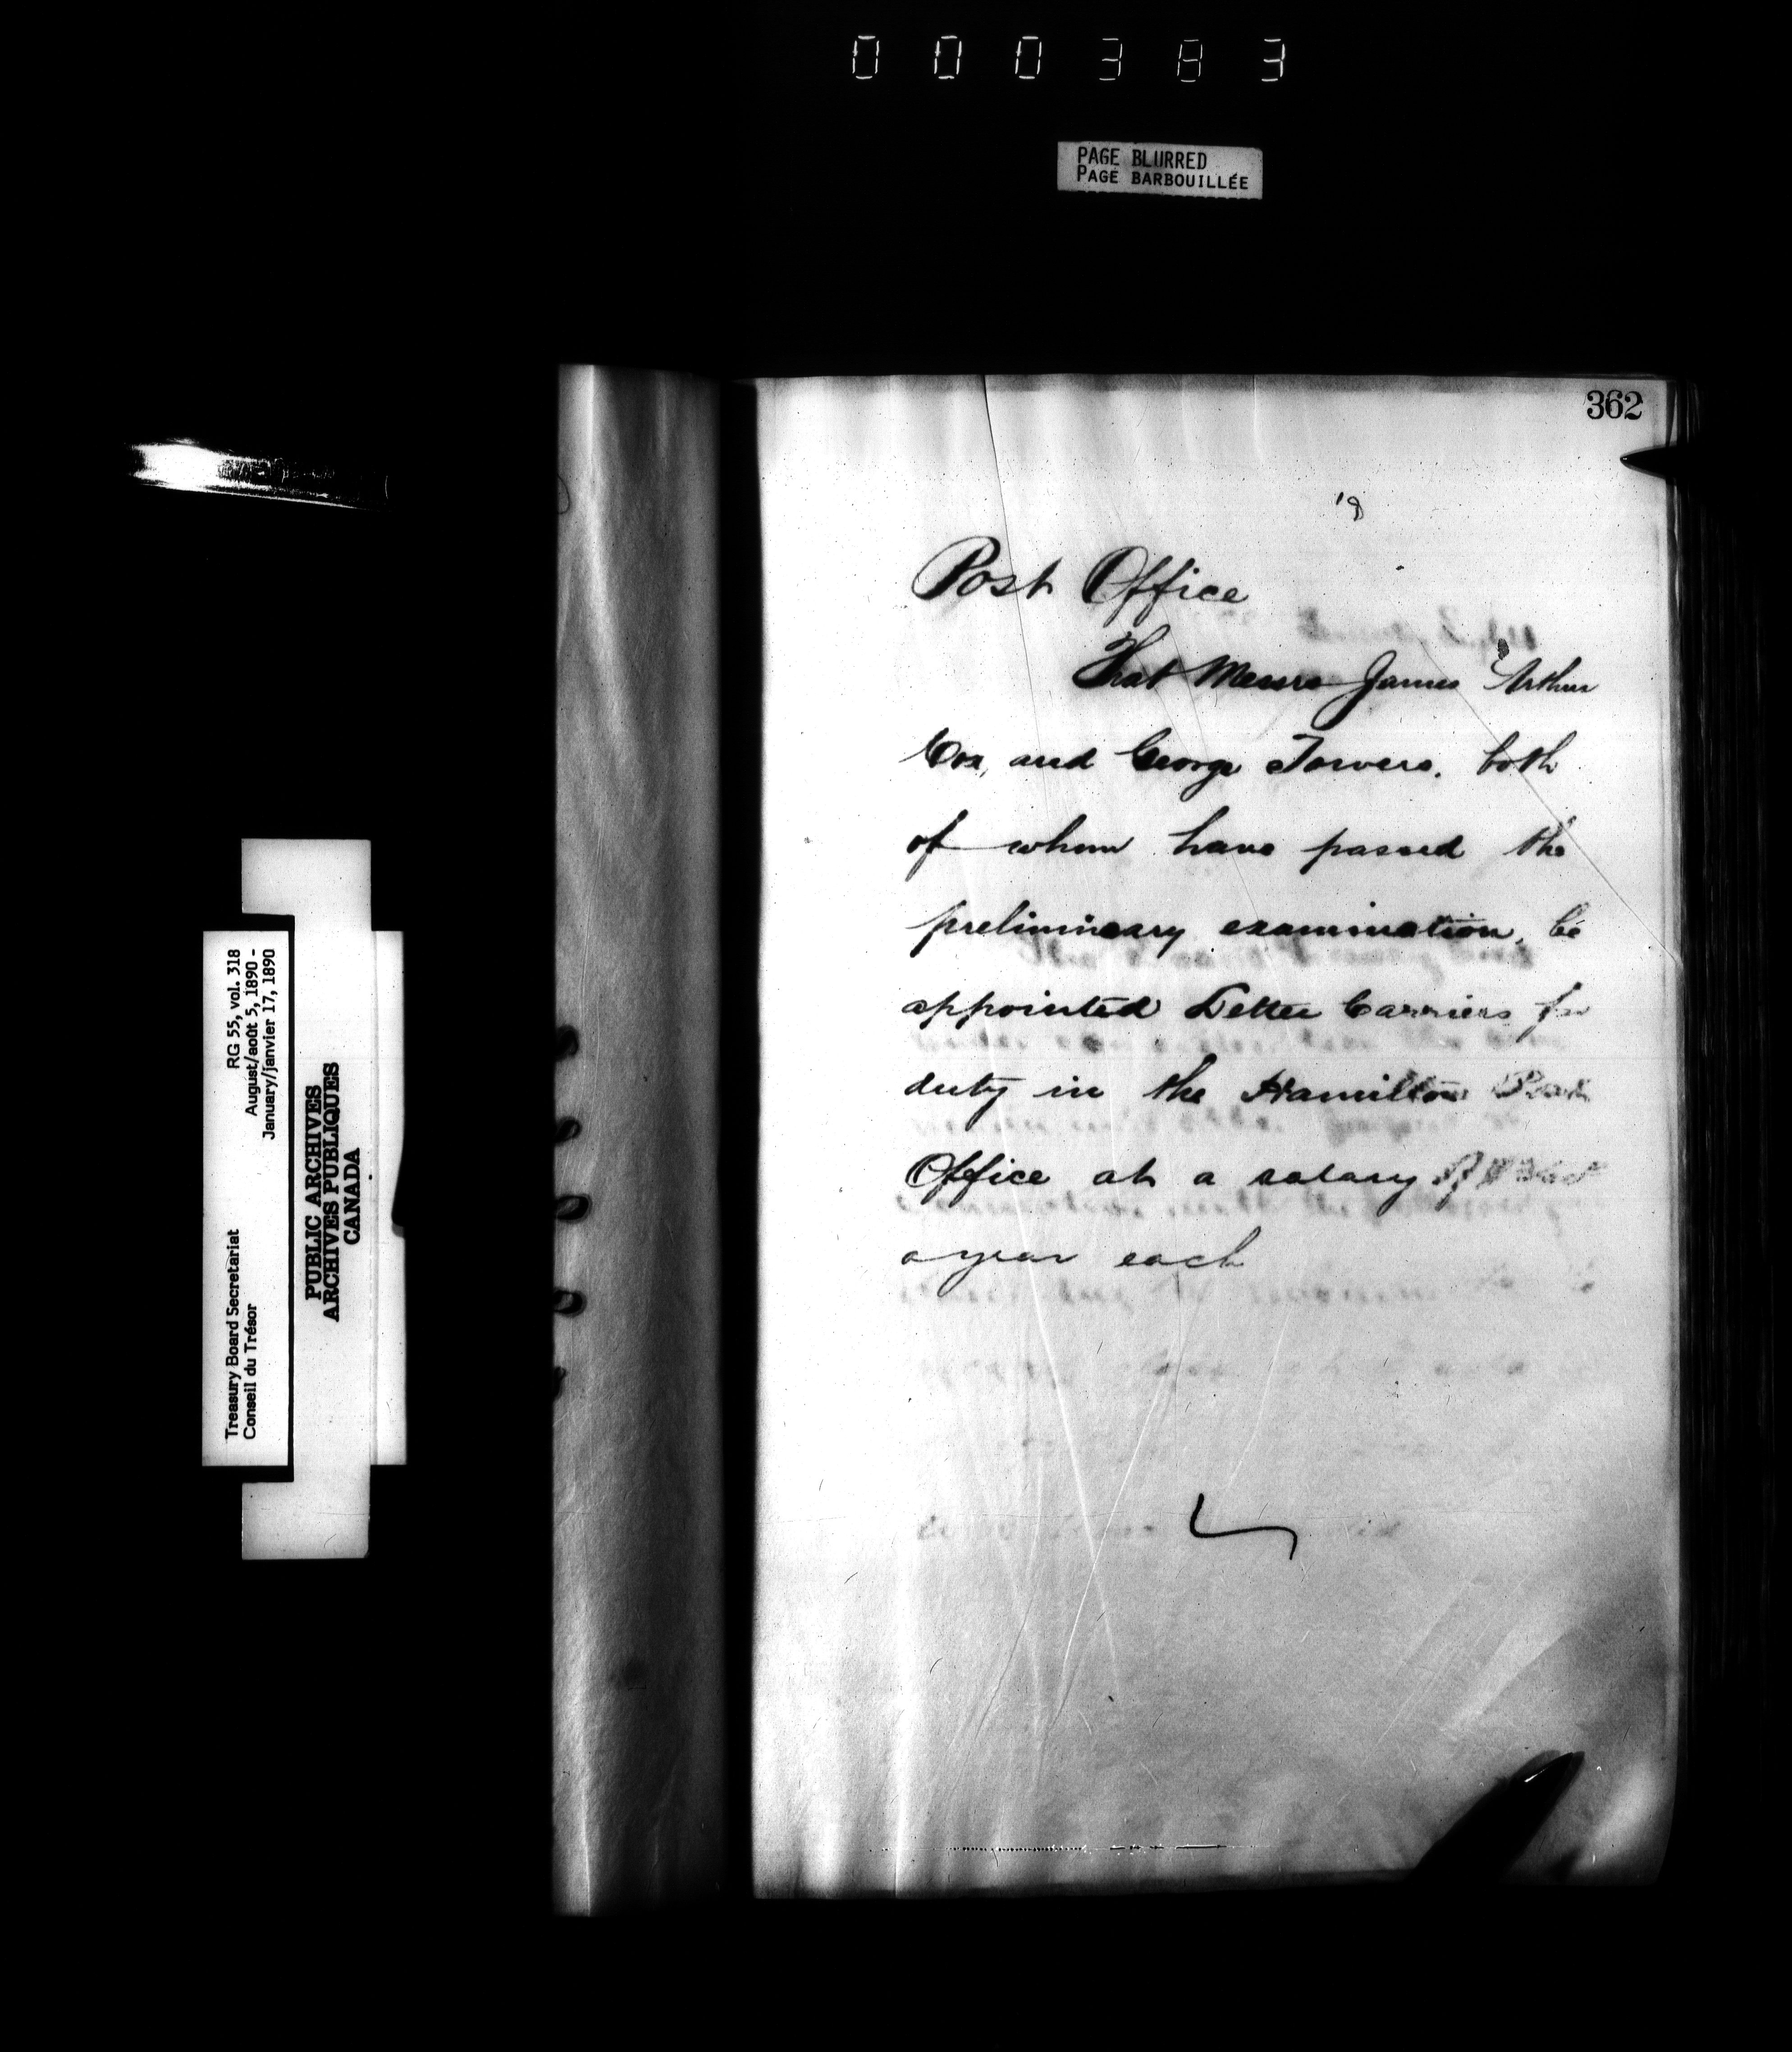 000383
PAGE BLURRED
PAGE BARBOUILLÉE
362
Post Office
That Messrs James Arthur
Cox, and George Towers, both
of whom have passed the
preliminary examination, be
appointed Letter Carriers for
duty in the Hamilton Post
Office at a salary of
a year each
RG 55, vol. 318
August/août 5, 1890 -
January/janvier 17, 1890
Treasury Board Secretariat
Conseil du Trésor
PUBLIC ARCHIVES
ARCHIVES PUBLIQUES
CANADA